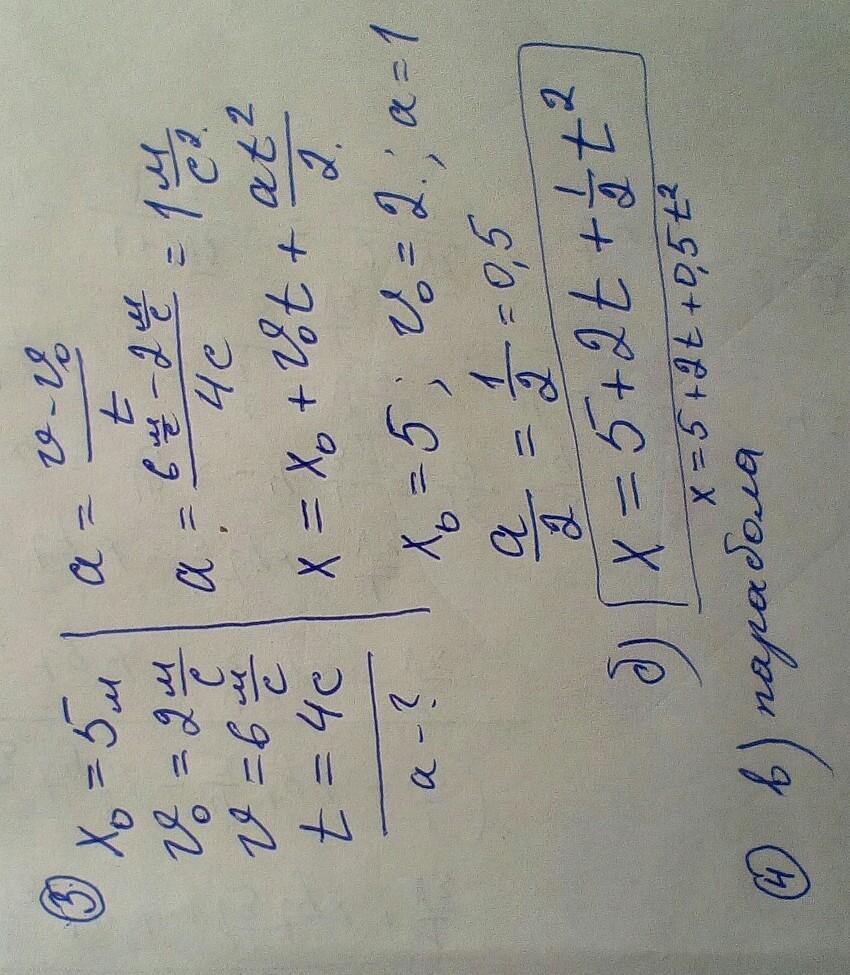 ③ x₀ = 5м
v₀ = 2 м/с
v = 6 м/с
t = 4с
a - ?
a = (v - v₀)/t
a = (6 м/с - 2 м/с)/4с = 1 м/с².
x = x₀ + v₀t + at²/2.
x₀ = 5; v₀ = 2.; a = 1
a/2 = 1/2 = 0,5
б) x = 5 + 2t + 1/2 t²
x = 5 + 2t + 0,5t²
④ в) парабола